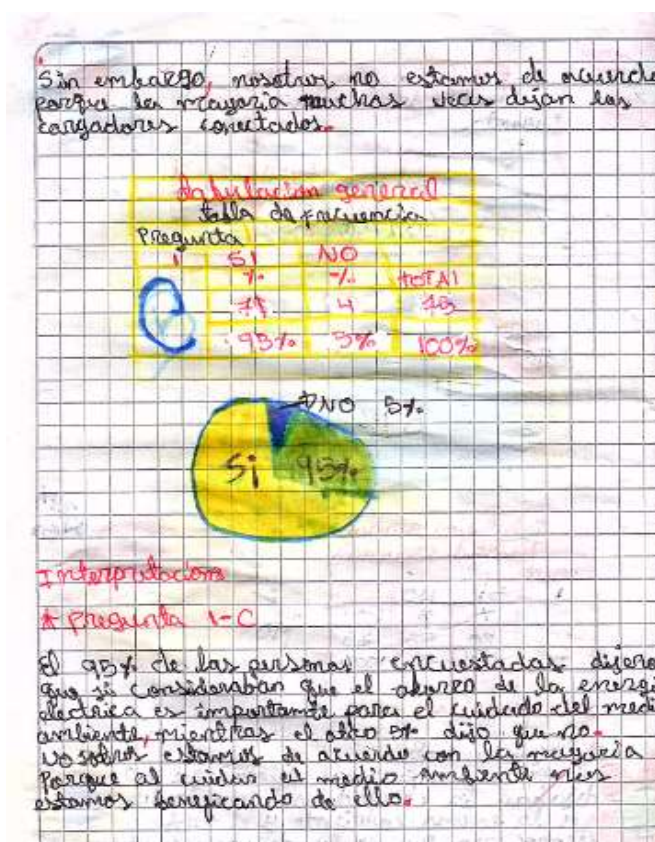 Sin embargo, nosotros no estamos de acuerdo
porque la mayoria muchas veces dejan los
cargadores conectados.
tabulacion general
tabla de frecuencia
Pregunta
1 SI NO
% % TOTAL
C 71 4 75
95% 5% 100%
NO 5%
Si 95%
Interpretacion
* Pregunta 1-C
El 95% de las personas encuestadas dijero
que si consideraban que el ahorro de la energi
electrica es importante para el cuidado del medi
ambiente, mientras el otro 5% dijo que no.
Nosotros estamos de acuerdo con la mayoria
Porque al cuidar el medio ambiente nos
estamos beneficando de ello.